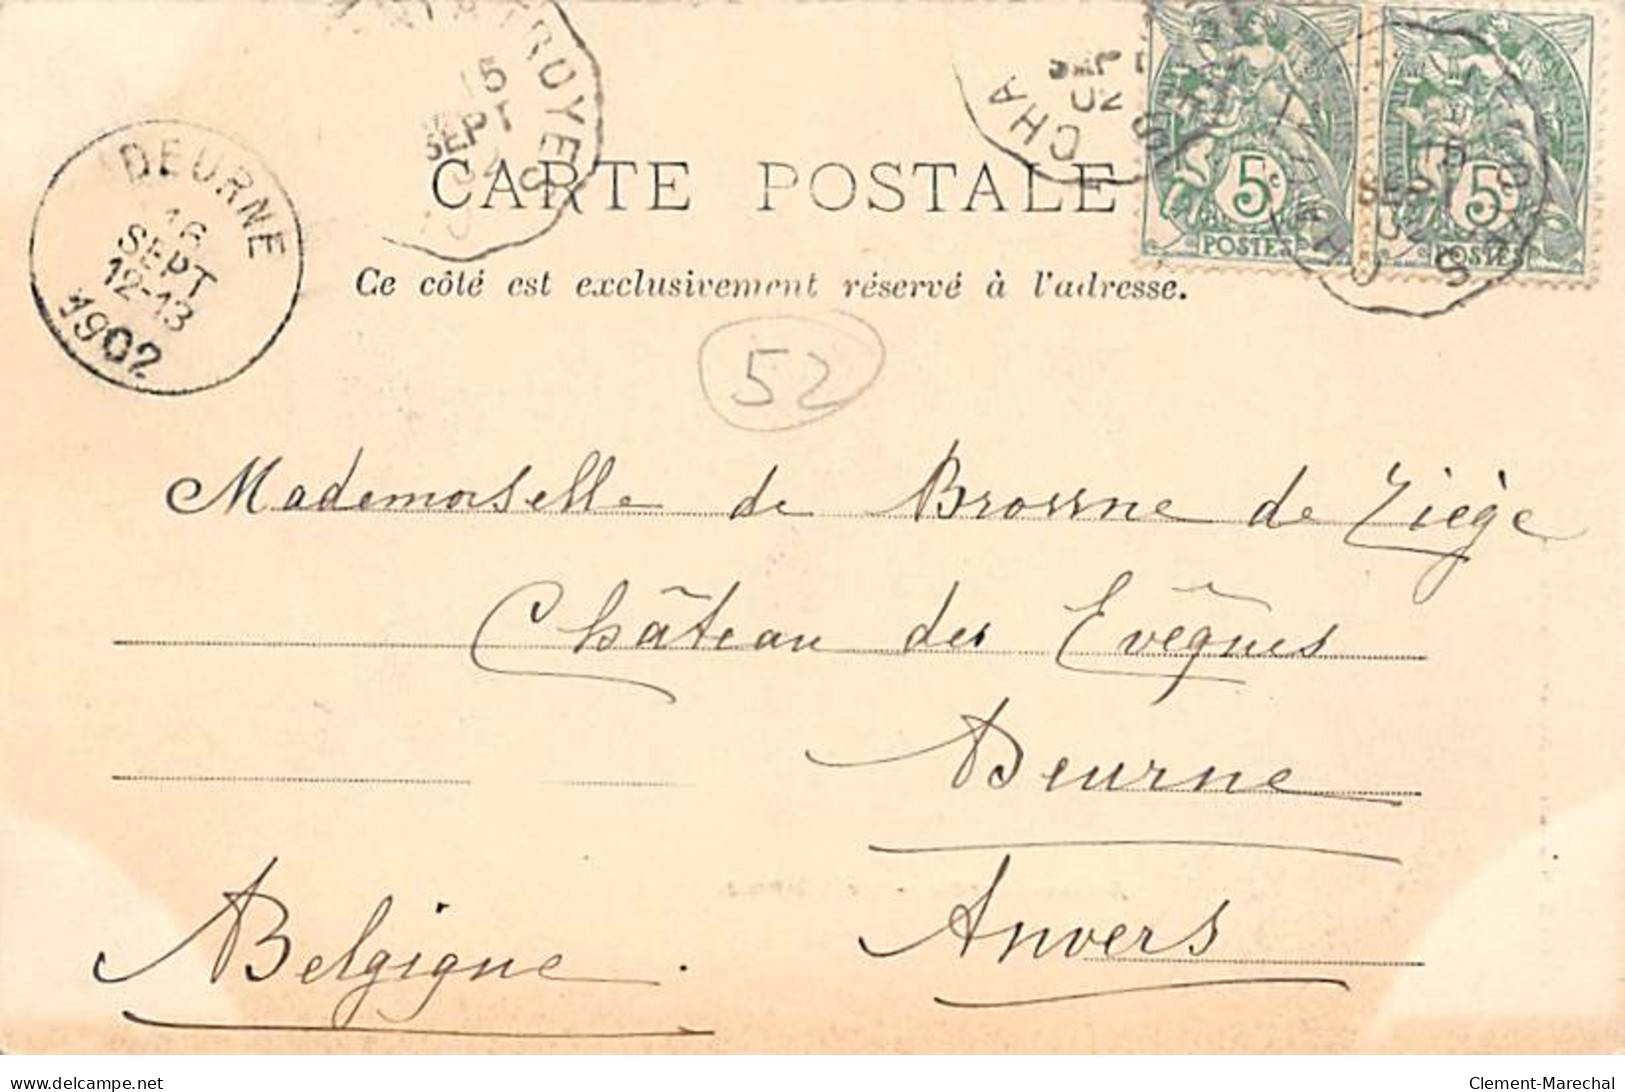 TROYES
15
SEPT
02
CHA
SEPT
02
5c
POSTES
15
SEPT
02
5c
POSTES
DEURNE
16
SEPT
12-13
1902
CARTE POSTALE
Ce côté est exclusivement réservé à l'adresse.
52
Mademoiselle de Brosne de Tiège
Château des Evêques
Deurne
Anvers
Belgique.
delcampe.net
Clement-Marechal